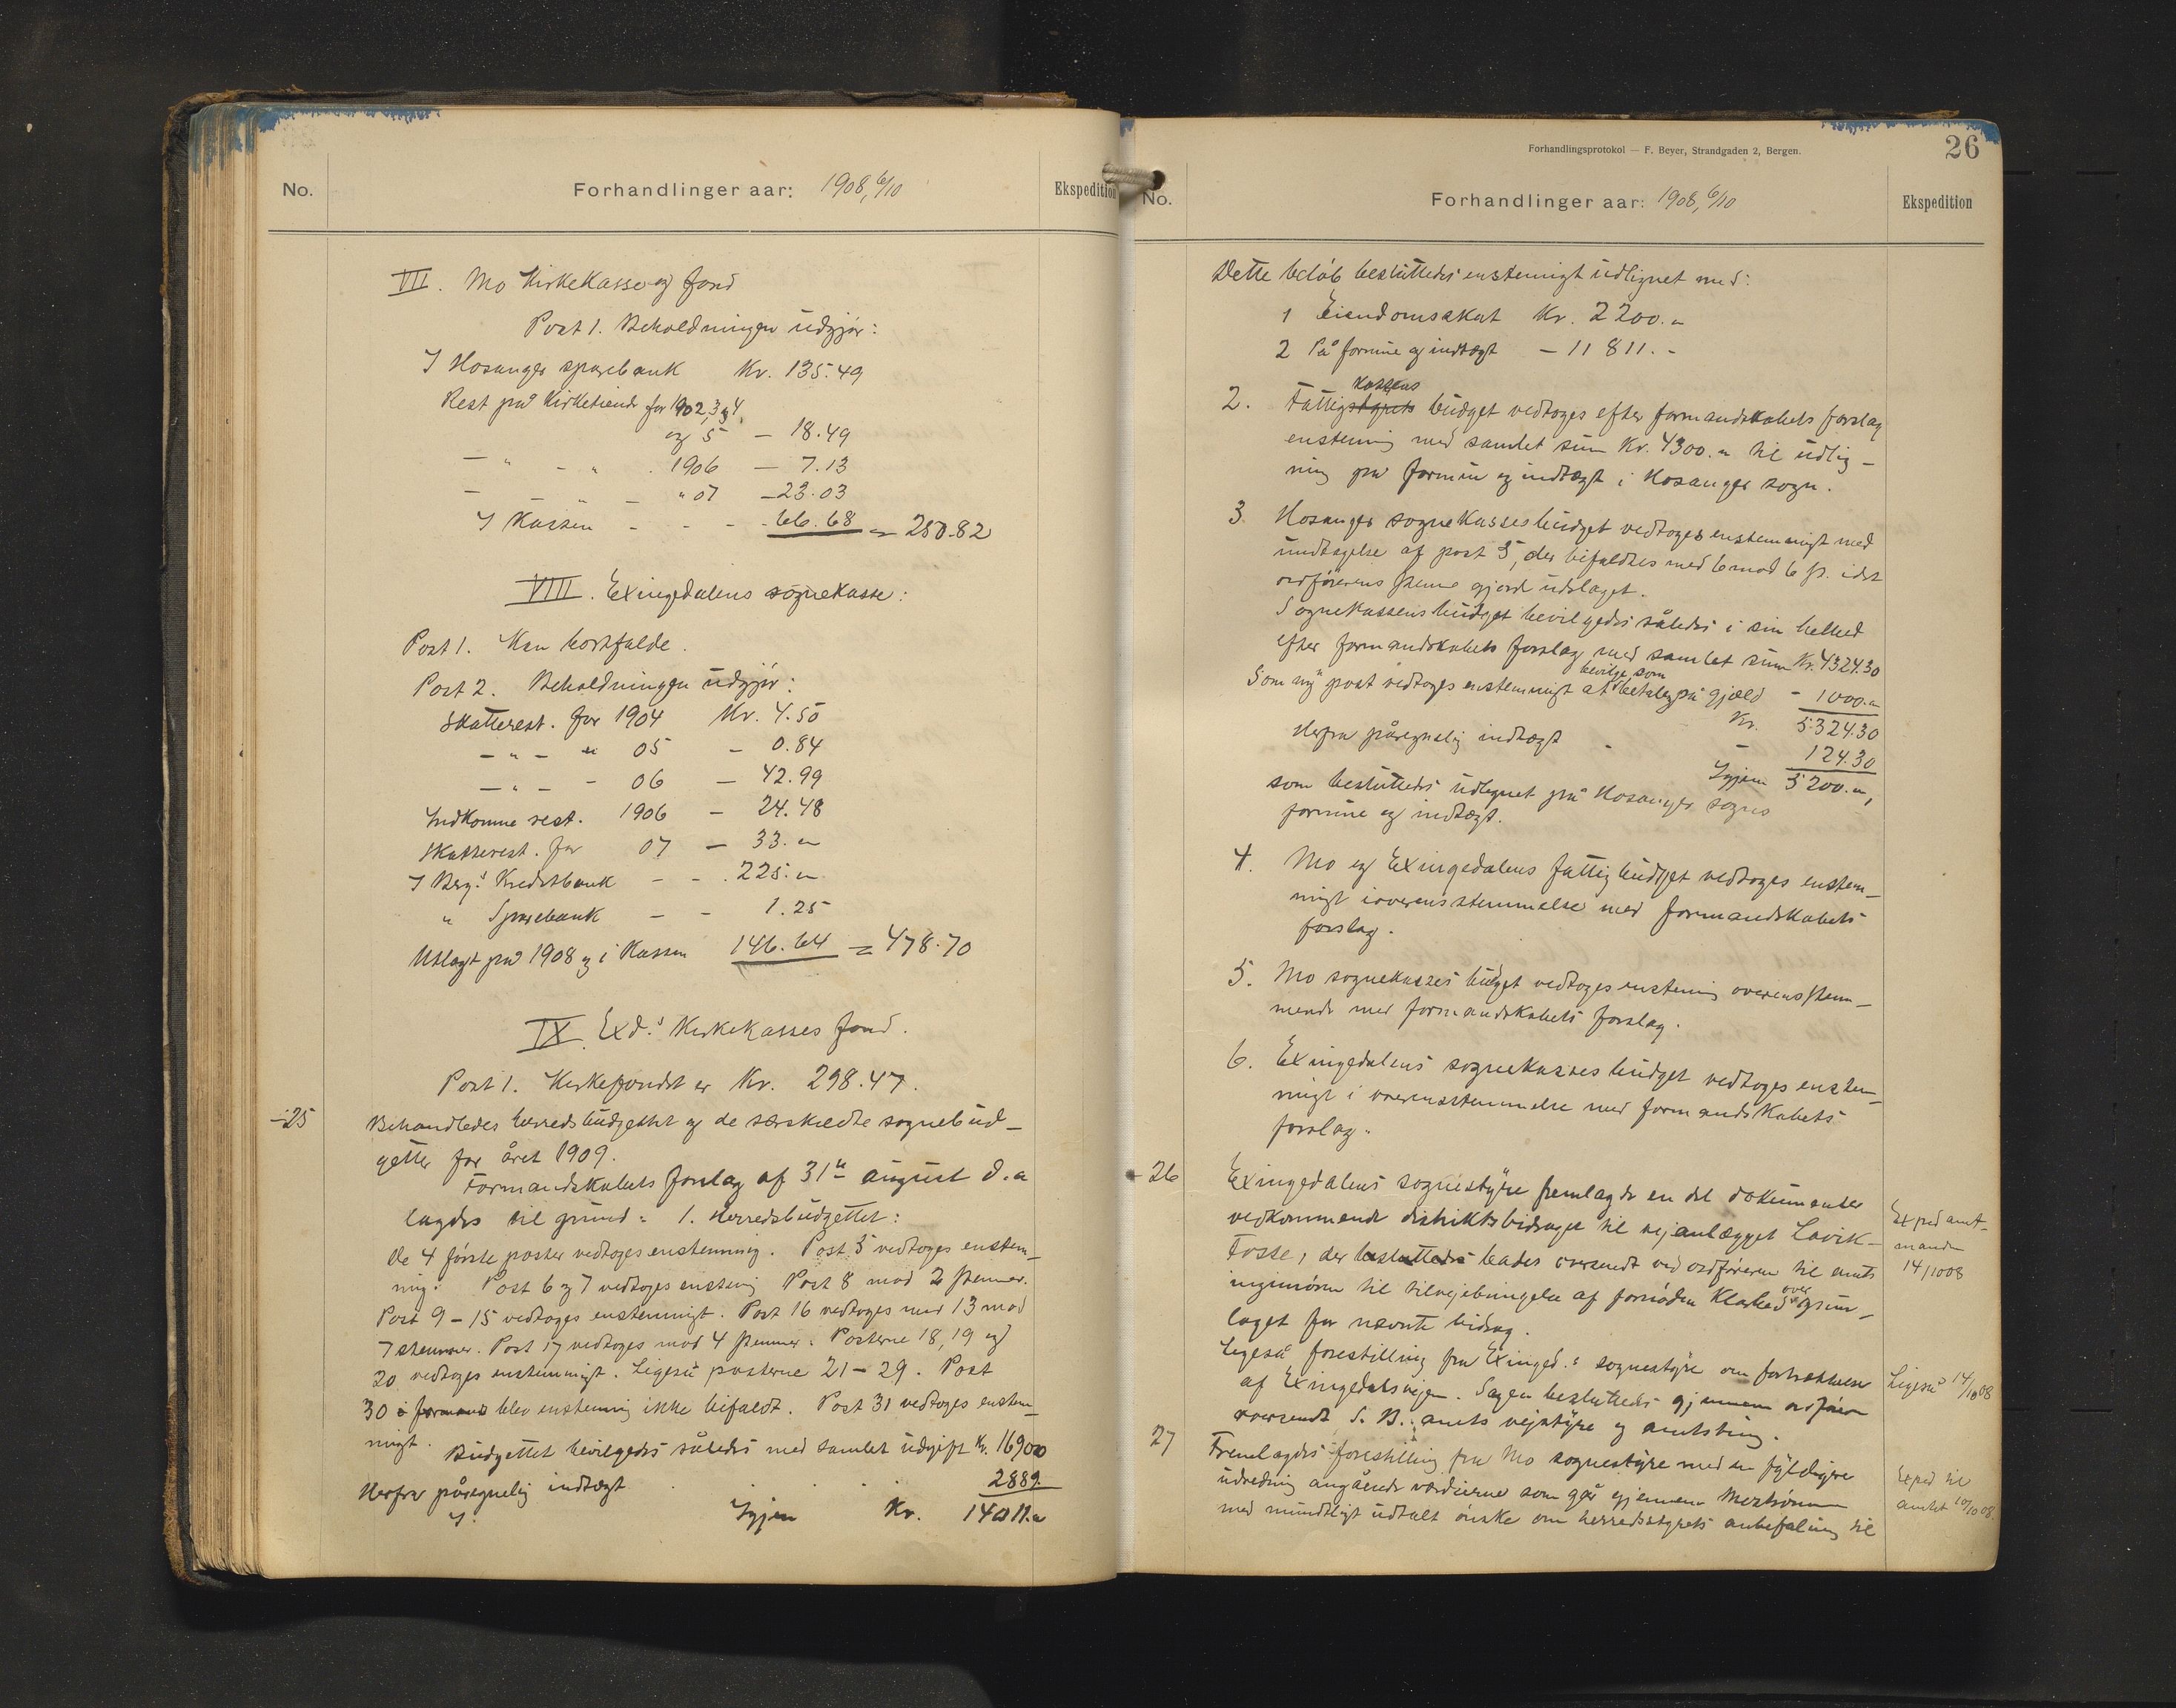 No.
Forhandlinger aar: 1908, 6/10
Ekspedition
VII. Mo Kirkekasse og fond
Post 1. Beholdningen udgjør:
I Hosanger sparebank Kr. 135.49
Rest på Kirketiende for 1902, 3 og 4
og 5 — 18.49
— " — " . 1906 — 7.13
— — " — " 07 — 23.03
I Kassen - - - 66.68 = 250.82
VIII. Exingedalens sognekasse:
Post 1. Kan bortfalde.
Post 2. Beholdningen udgjør:
Skatterest. for 1904 Kr. 4.50
— " — " 05 - 0.84
— " — - 06 — 42.99
Indkomne rest. 1906 — 24.48
Skatterest. for 07 — 33. "
I Berg.s Kreditbank - - . 225. "
" Sparebank — - 1.25
Utlagt på 1908 og i Kassen 146.64 = 478.70
IX. Exd.s Kirkekasses fond.
Post 1. Kirkefondet er Kr. 298.47.
-25
Behandledes herredsbudgettet og de særskildte sognebud-
getter for året 1909.
Formandskabets forslag af 31te august d.a
lagdes til grund: 1. Herredsbudgettet:
De 4 første poster vedtoges enstemmig. Post 5 vedtoges enstem-
mig. Post 6 og 7 vedtoges enstemig Post 8 mod 2 stemmer.
Post 9 – 15 vedtoges enstemmigt. Post 16 vedtoges med 13 mod
7 stemmer. Post 17 vedtoges mod 4 stemmer. Posterne 18, 19 og
20 vedtoges enstemmigt. Ligeså posterne 21 – 29. Post
30 i formands blev enstemmig ikke bifaldt. Post 31 vedtoges enstem-
migt.
Budgettet bevilgedes således med samlet udgift Kr. 16900
Herfra påregnelig indtægt . . . 2889.
Igjen Kr. 14011."
Forhandlingsprotokol — F. Beyer, Strandgaden 2, Bergen.
26
No.
Forhandlinger aar: 1908, 6/10
Ekspedition
Dette beløb besluttedes enstemmigt udlignet med:
1 Eiendomsskat Kr. 2200. "
2 På formue og indtægt — 11811. -
kassens
2. Fattigstyrets budget vedtoges efter formandskabets forslag
enstemmig med samlet sum Kr. 4300. " til udlig-
ning på formue og indtægt i Hosanger sogn.
3 Hosanger sognekasses budget vedtoges enstemmigt med
undtagelse af post 5, der bifaldtes med 6 mod 6 st. idet
ordførerens stemme gjorde udslaget.
Sognekassens budget bevilgedes således i sin helhed
efter formandskabets forslag med samlet sum Kr. 4324.30
bevilge som
Som ny post vedtoges enstemmigt at betaling på gjæld - 1000. "
Kr. 5324.30
Herfra påregnelig indtægt - — 124.30
Igjen 5200. ",
som besluttedes udlignet på Hosanger sogns
formue og indtægt.
4. Mo og Exingedalens fattigbudget vedtoges enstem-
migt i overensstemmelse med formandskabets
forslag.
5. Mo sognekasses budget vedtoges enstemig overensstem-
mende med formandskabets forslag.
6. Exingedalens sognekasses budget vedtoges enstem-
migt i overensstemmelse med formandskabets
forslag.
- 26
Exingedalens sognestyre fremlagde en del dokumenter
vedkommende distriktsbidraget til vejanlægget Lavik-
Fosse, der besluttedes bades oversendt ved ordføreren til amts
ingeniøren til tilvejebringelse af fornøden klarhed over grun-
laget for nævnte bidrag.
Exped amt-
mande
14/10 08
Ligeså forestilling fra Exinged.s sognestyre om fortsættelse
af Exingedalsvejen. Sagen besluttedes gjennem ordfører
oversendt S. B. amts vejstyre og amtsting.
Ligeså 14/10 08
27
Fremlagdes forestilling fra Mo sognestyre med en fyldigere
udredning angående værdierne som går gjennem
med mundtligt udtalt ønske om herredsstyrets anbefaling til
Exped til
amtet 10/10 08.